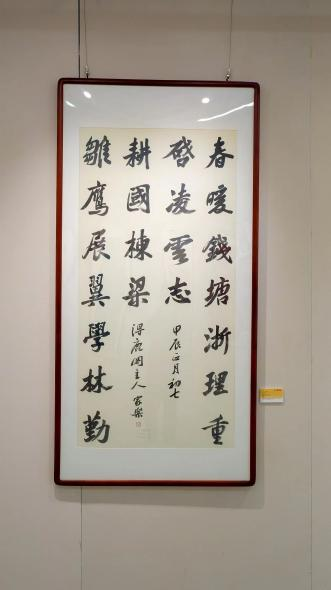 春暖錢塘浙理重
啓凌雲志
甲辰正月初七
雛鷹展翼學林勤
耕國棟梁
得鹿閣主人 家樂